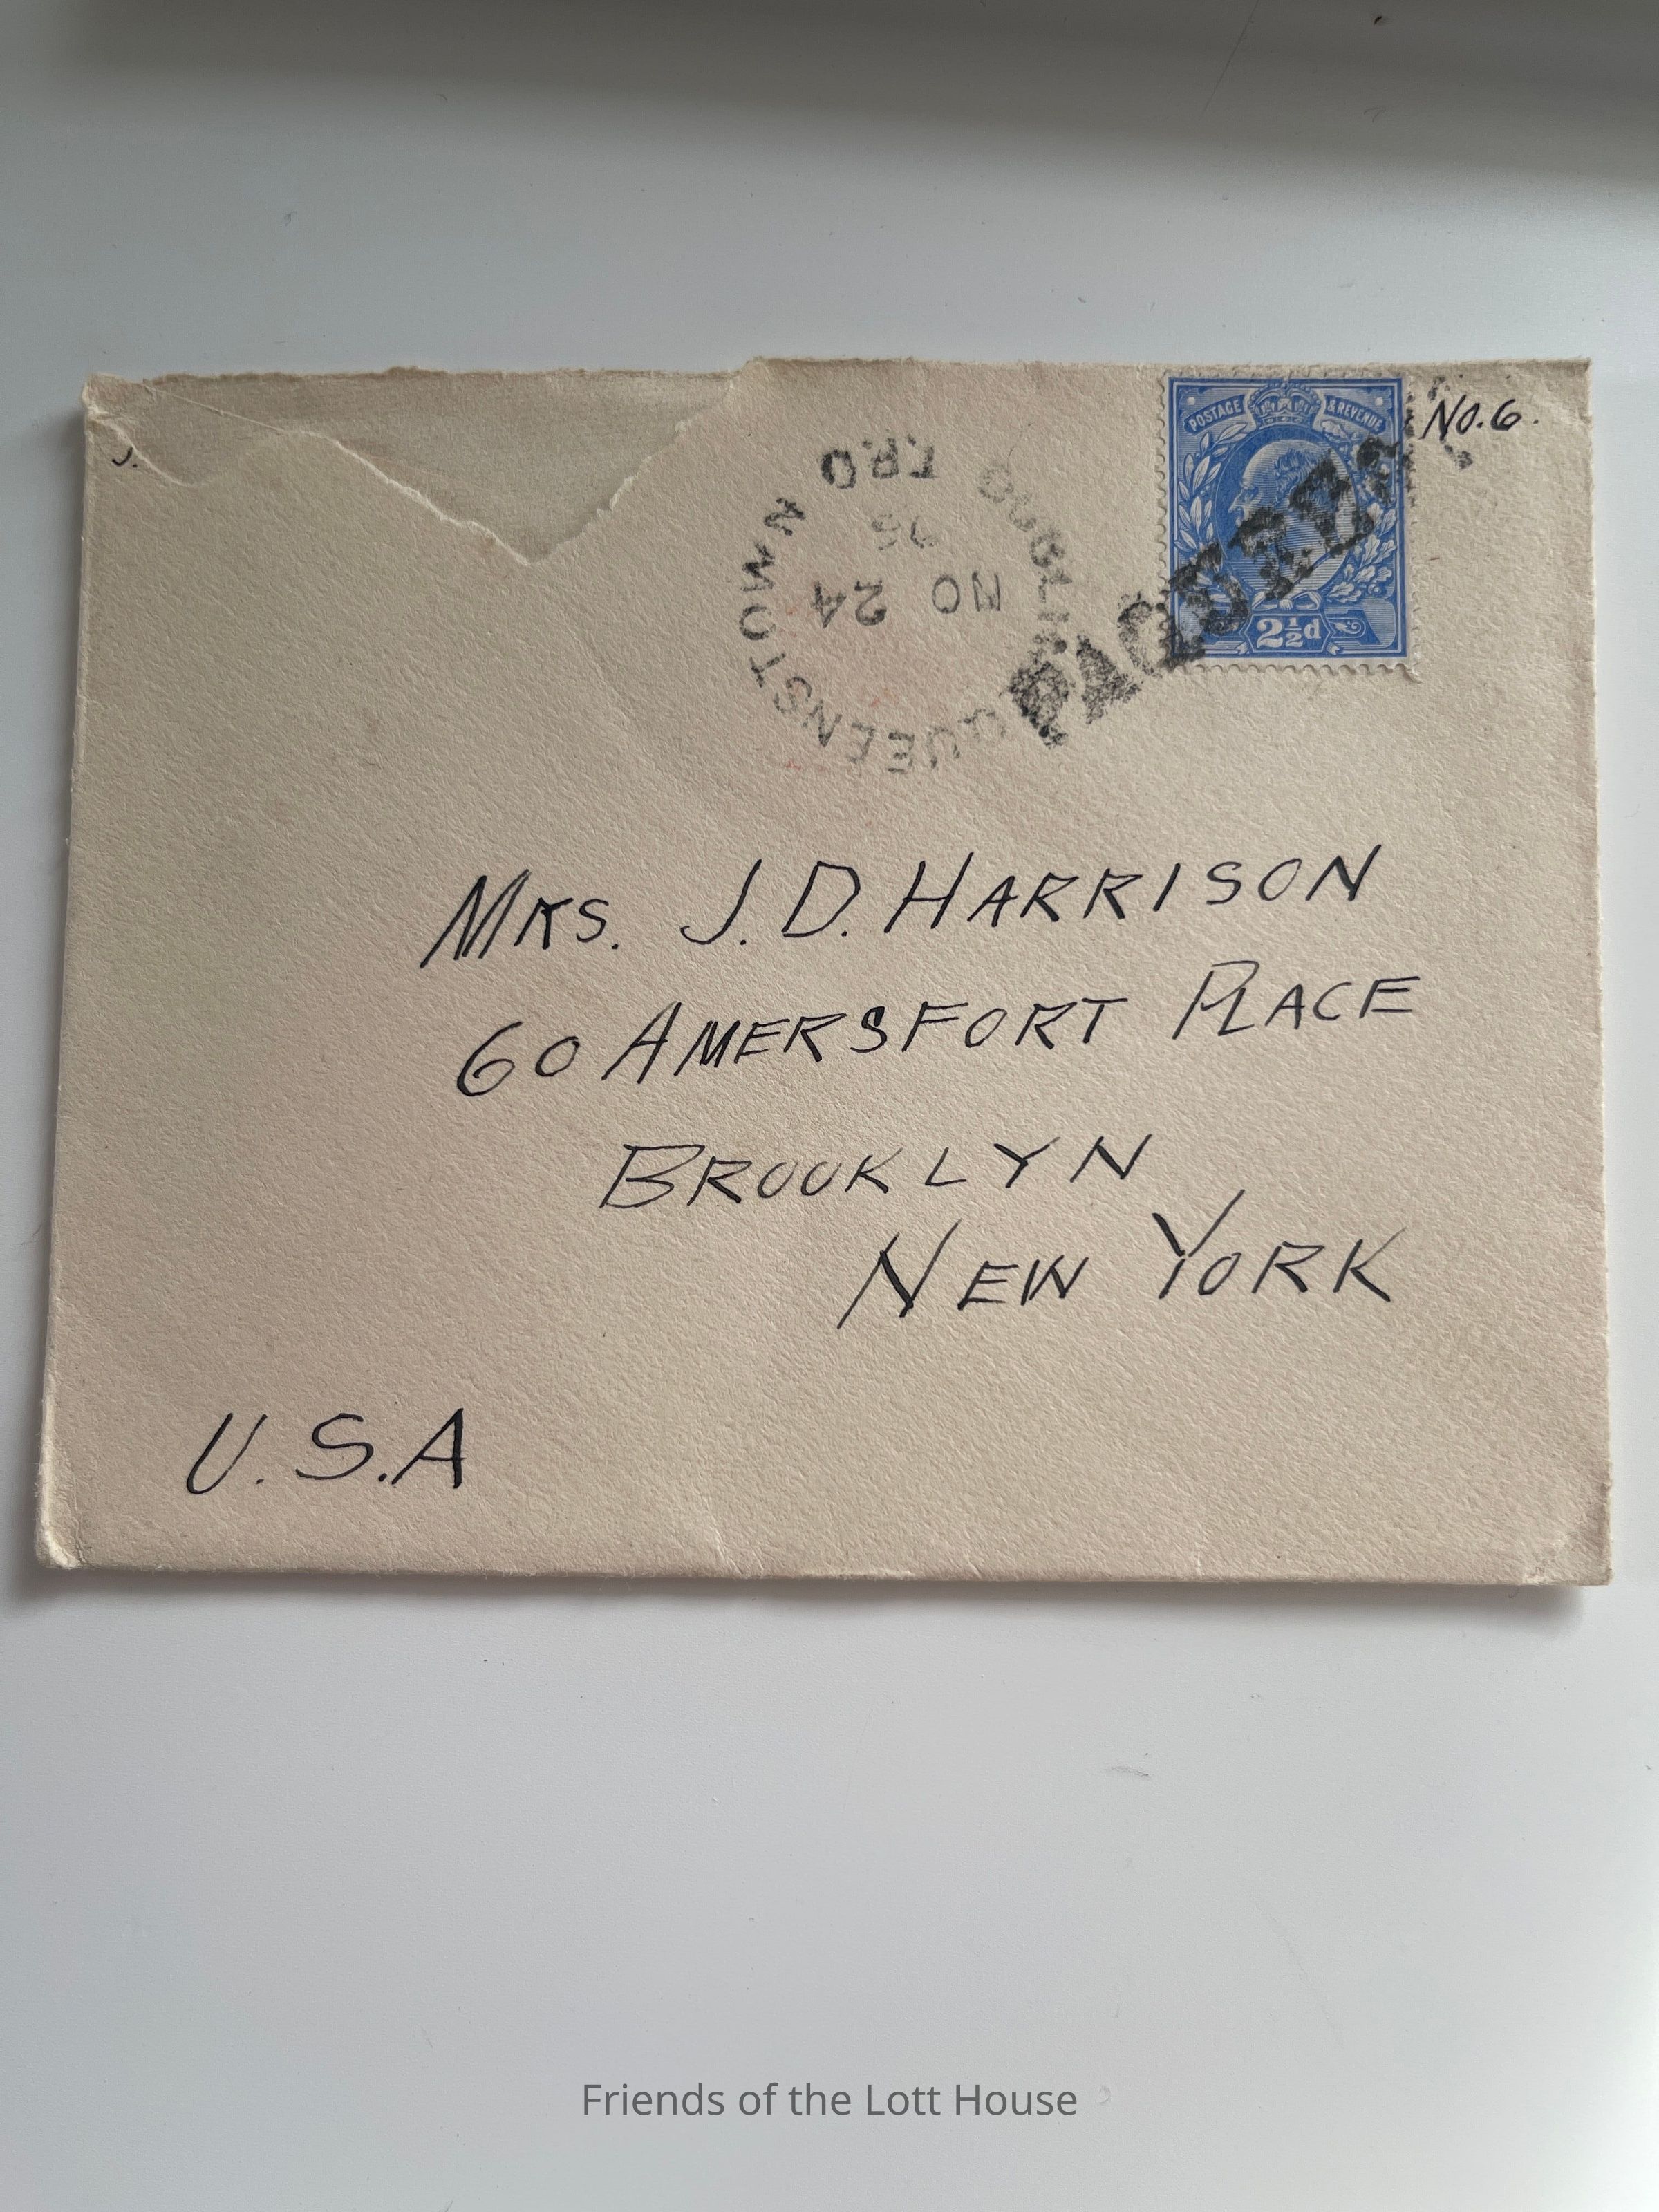 POSTAGE & REVENUE
2½d
NO. 6.
QUEENSTOWN
T.P.O
NO 24
MRS. J. D. HARRISON
60 AMERSFORT PLACE
BROOKLYN
NEW YORK
U.S.A
Friends of the Lott House